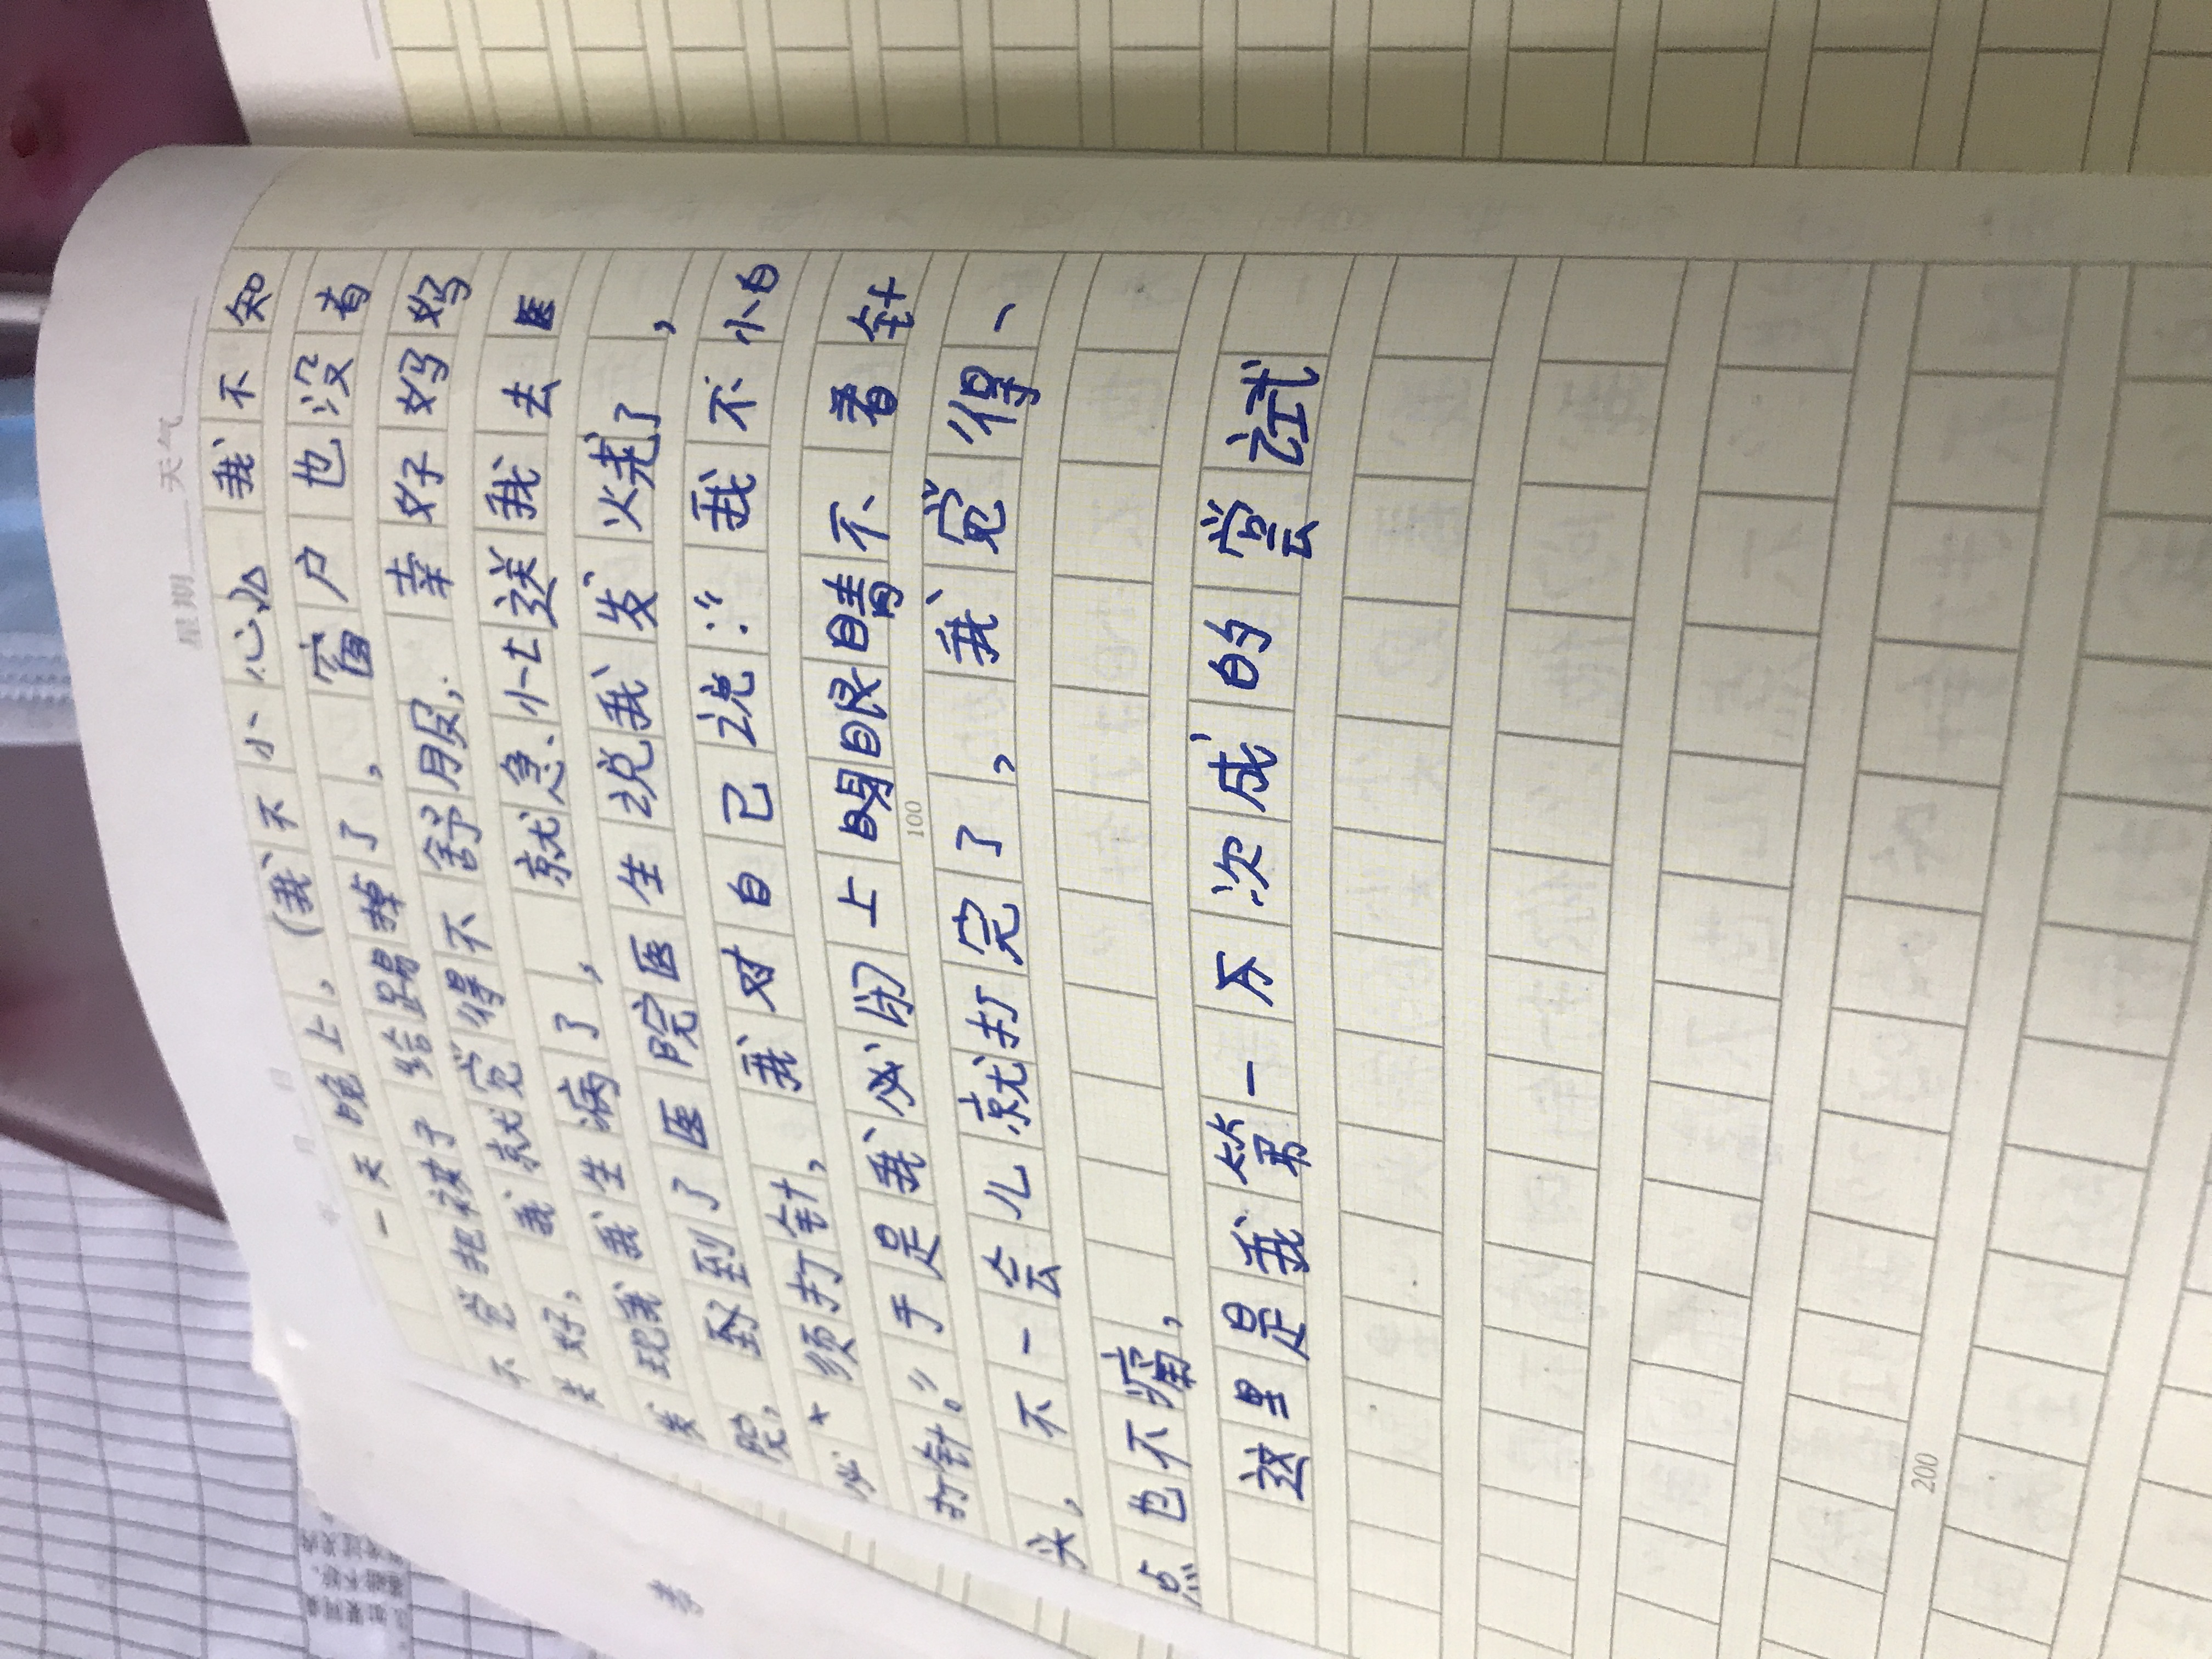 年 月 日 星期 天气
一天晚上,(我不小心 我不知
不觉把被子给踢掉了,窗户也没有
关好,我就觉得不舒服,幸好妈妈
发现我我生病了,就急忙送我去医
院,到了医院医生说我发烧了,
必须打针,我对自己说:“我不怕
打针。”于是我必上眼睛不看针
100
头,不一会儿就打完了,我觉得一
点也不痛,
这里是我第一不次成的尝试
200